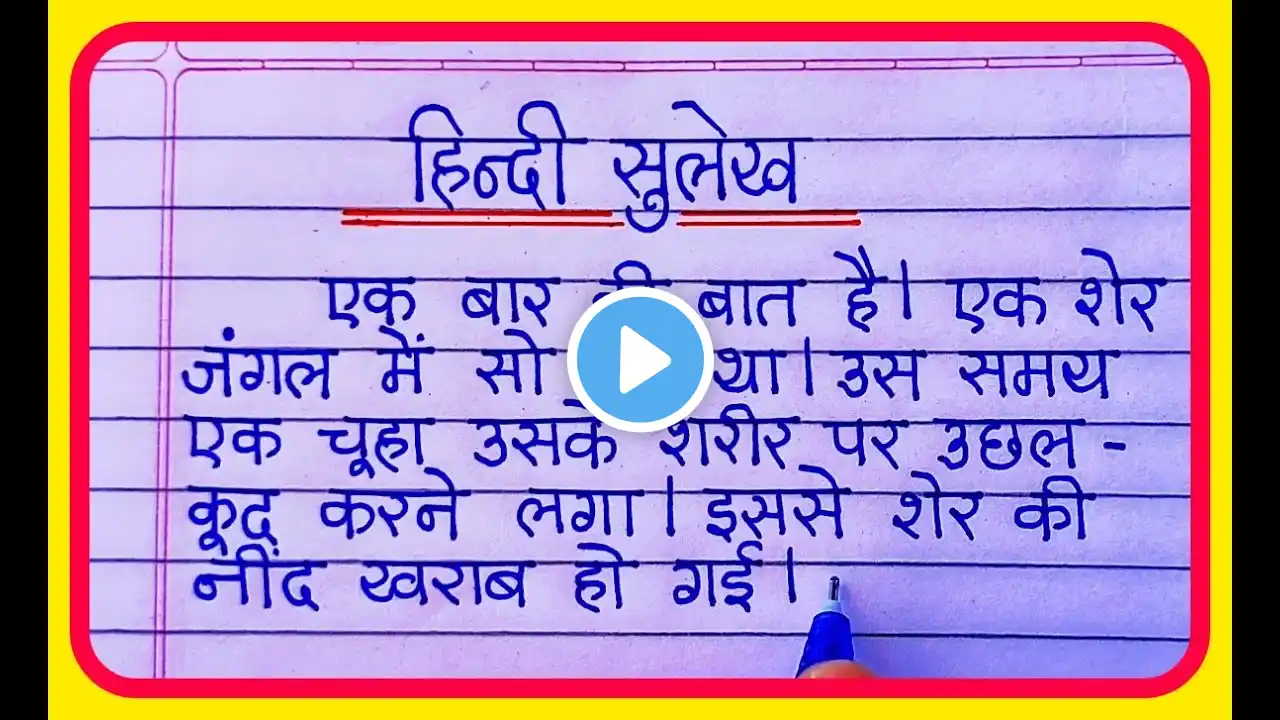 हिन्दी सुलेख
एक बार की बात है। एक शेर
जंगल में सो था। उस समय
एक चूहा उसके शरीर पर उछल -
कूद करने लगा। इससे शेर की
नींद खराब हो गई।